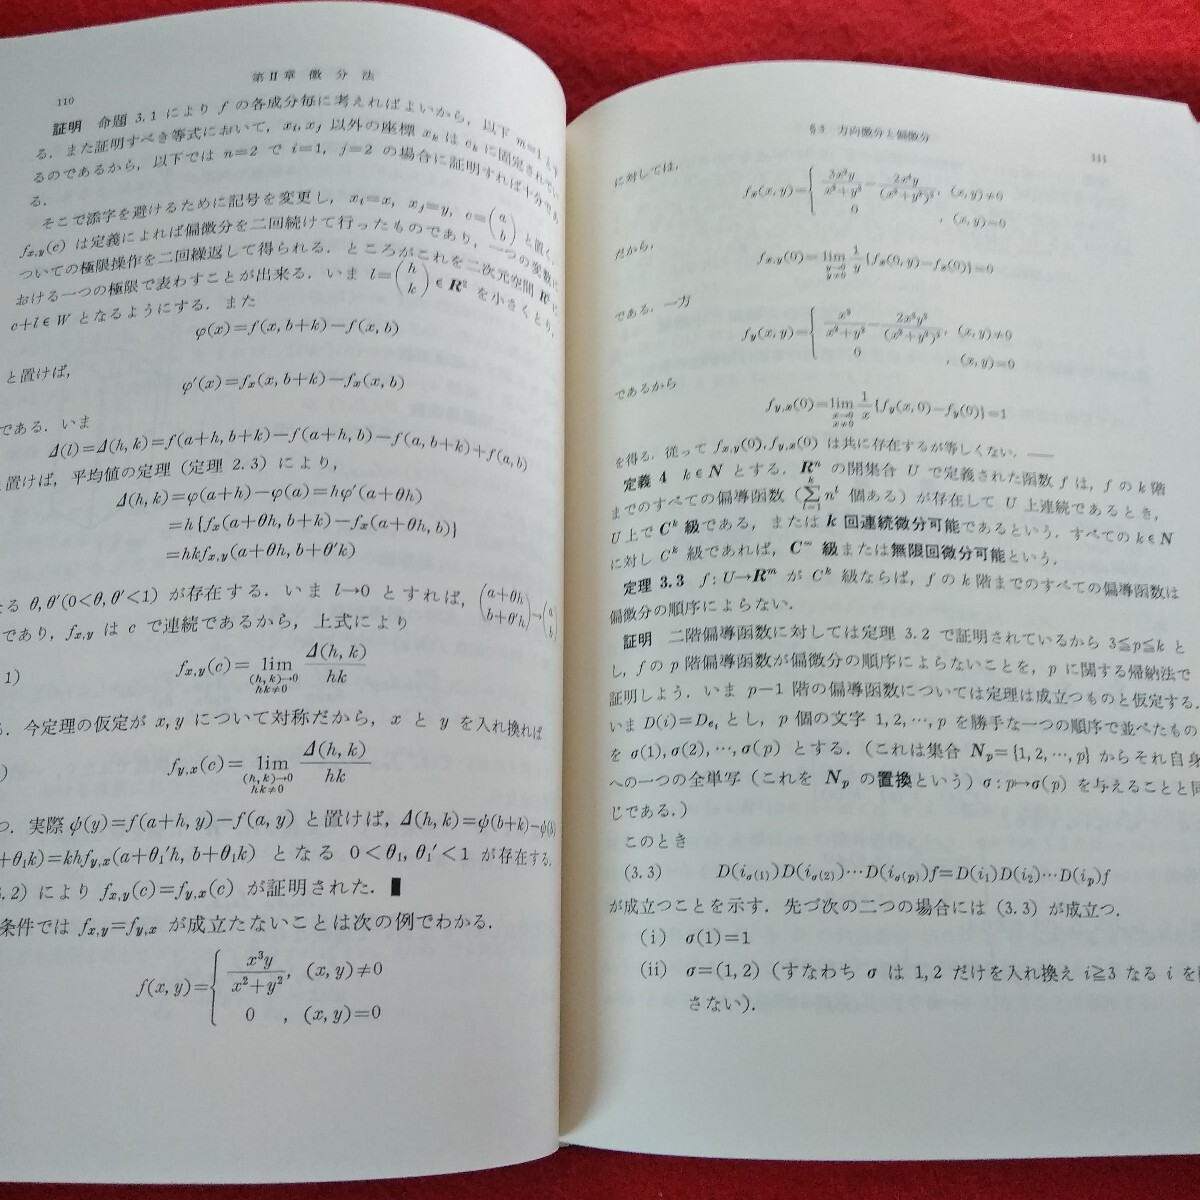 110
第II章 微分法
証明 命題 3.1 により f の各成分毎に考えればよいから, 以下 m=1 とす
る. また証明すべき等式において, x_i, x_j 以外の座標 x_k は c_k に固定されてい
るのであるから, 以下では n=2 で i=1, j=2 の場合に証明すれば十分であ
る.
そこで添字を避けるために記号を変更し, x_i=x, x_j=y, c=(a b) と置く.
f_{x,y}(c) は定義によれば偏微分を二回続けて行ったものであり, 一つの変数に
ついての極限操作を二回繰返して得られる. ところがこれを二次元空間 R² に
おける一つの極限で表わすことが出来る. いま l=(h k)∈R² を小さくとり,
c+l∈W となるようにする. また
φ(x)=f(x, b+k)−f(x, b)
と置けば,
φ′(x)=f_x(x, b+k)−f_x(x, b)
である. いま
Δ(l)=Δ(h, k)=f(a+h, b+k)−f(a+h, b)−f(a, b+k)+f(a, b)
置けば, 平均値の定理 (定理 2.3) により,
Δ(h, k)=φ(a+h)−φ(a)=hφ′(a+θh)
=h{f_x(a+θh, b+k)−f_x(a+θh, b)}
=hkf_{x,y}(a+θh, b+θ′k)
る θ, θ′(0<θ, θ′<1) が存在する. いま l→0 とすれば, (a+θh b+θ′h)→(a b)
であり, f_{x,y} は c で連続であるから, 上式により
1) f_{x,y}(c)=lim_{(h,k)→0, hk≠0} Δ(h, k)/hk
. 今定理の仮定が x, y について対称だから, x と y を入れ換れば
) f_{y,x}(c)=lim_{(h,k)→0, hk≠0} Δ(h, k)/hk
つ. 実際 ψ(y)=f(a+h, y)−f(a, y) と置けば, Δ(h, k)=ψ(b+k)−ψ(b)
+θ₁k)=khf_{y,x}(a+θ₁′h, b+θ₁k) となる 0<θ₁, θ₁′<1 が存在する.
.2) により f_{x,y}(c)=f_{y,x}(c) が証明された. ▮
条件では f_{x,y}=f_{y,x} が成立たないことは次の例でわかる.
f(x, y)={ x³y/(x²+y²), (x, y)≠0
0 , (x, y)=0
§3 方向微分と偏微分
111
に対しては,
f_x(x, y)={ 3x²y/(x²+y²) − 2x⁴y/(x²+y²)², (x, y)≠0
0 , (x, y)=0
だから,
f_{x,y}(0)=lim_{y→0, y≠0} 1/y {f_x(0, y)−f_x(0)}=0
である. 一方
f_y(x, y)={ x³/(x²+y²) − 2x³y²/(x²+y²)², (x, y)≠0
0 , (x, y)=0
であるから
f_{y,x}(0)=lim_{x→0, x≠0} 1/x {f_y(x, 0)−f_y(0)}=1
を得る. 従って f_{x,y}(0), f_{y,x}(0) は共に存在するが等しくない. ——
定義 4 k∈N とする. Rⁿ の開集合 U で定義された函数 f は, f の k 階
までのすべての偏導函数 (∑_{l=1}^{k} n^l 個ある) が存在して U 上連続であるとき,
U 上で C^k 級である, または k 回連続微分可能であるという. すべての k∈N
に対し C^k 級であれば, C^∞ 級または無限回微分可能という.
定理 3.3 f : U→R^m が C^k 級ならば, f の k 階までのすべての偏導函数は
偏微分の順序によらない.
証明 二階偏導函数に対しては定理 3.2 で証明されているから 3≦p≦k と
し, f の p 階偏導函数が偏微分の順序によらないことを, p に関する帰納法で
証明しよう. いま p−1 階の偏導函数については定理は成立つものと仮定する.
いま D(i)=D_{e_i} とし, p 個の文字 1, 2, …, p を勝手な一つの順序で並べたもの
を σ(1), σ(2), …, σ(p) とする. (これは集合 N_p={1, 2, …, p} からそれ自身
への一つの全単写 (これを N_p の置換という) σ : p↦σ(p) を与えることと同
じである.)
このとき
(3.3) D(i_{σ(1)})D(i_{σ(2)})⋯D(i_{σ(p)})f=D(i₁)D(i₂)⋯D(i_p)f
が成立つことを示す. 先づ次の二つの場合には (3.3) が成立つ.
(i) σ(1)=1
(ii) σ=(1, 2) (すなわち σ は 1, 2 だけを入れ換え i≧3 なる i を
さない).